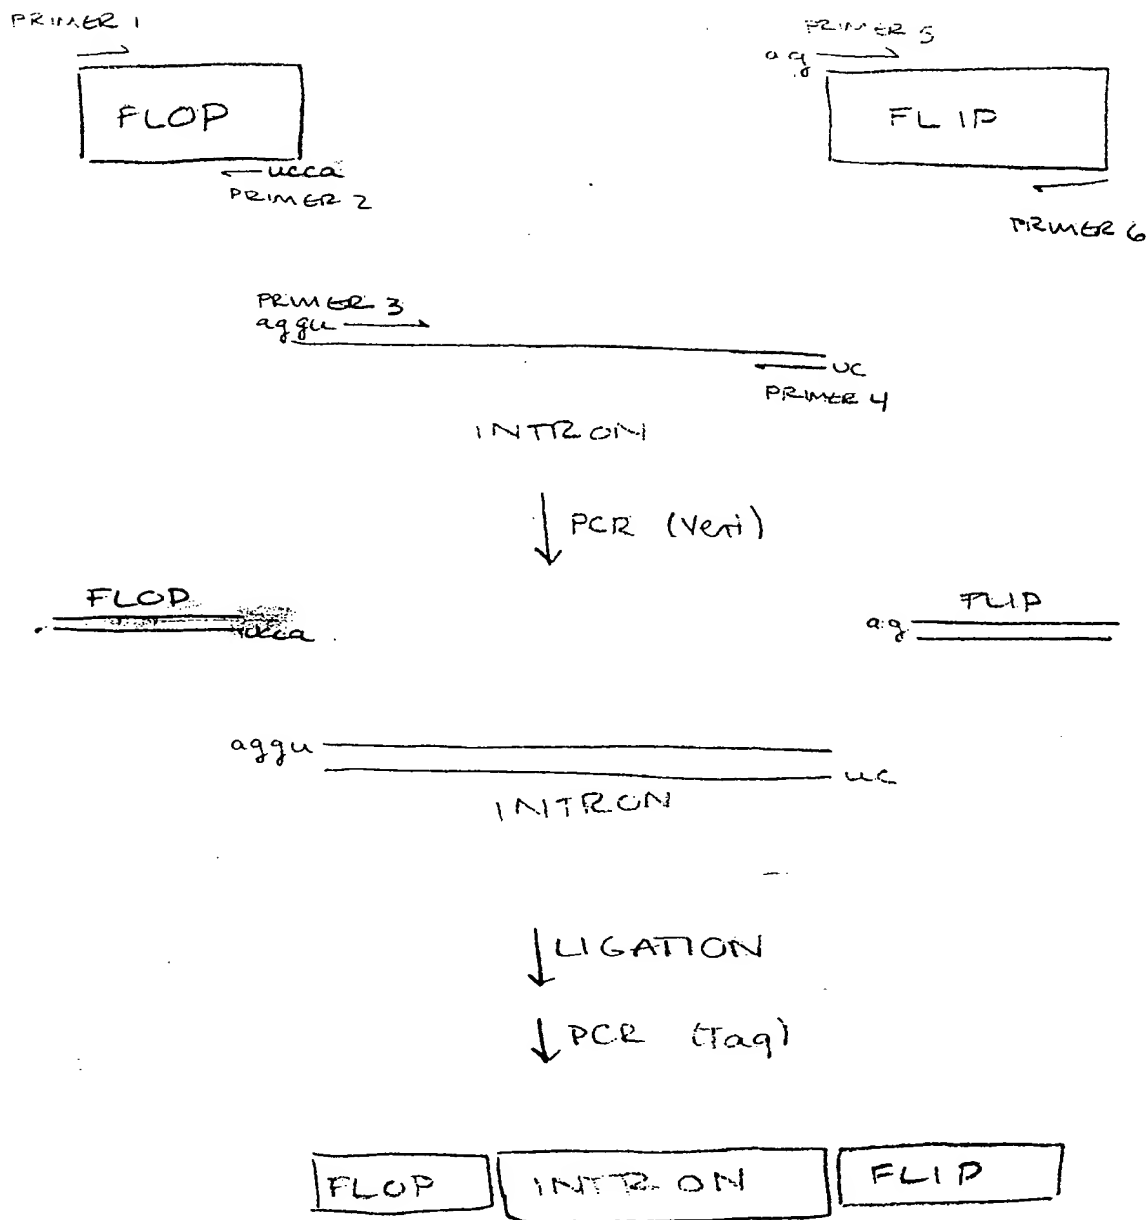 PRIMER 1
FLOP
ucca
PRIMER 2
PRIMER 5
ag
FLIP
PRIMER 6
PRIMER 3
aggu
uc
PRIMER 4
INTRON
PCR (Vent)
FLOP
ucca
FLIP
ag
aggu
uc
INTRON
LIGATION
PCR (Taq)
FLOP
INTRON
FLIP